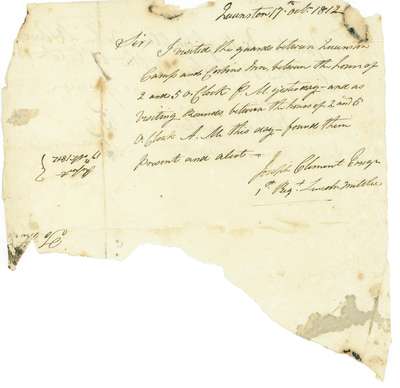 Queenston 17th octr 1812
Sir,
I visited the guards between Queenston
Camp and Corbins Inn between the hours of
2 and 5 o Clock P. M yesterday - and as
visiting Rounds between the hours of 2 and 5
o Clock A. M this day - found them
Present and alert -
Joseph Clement Ensign
1st Regt Lincoln Militia
Report
17 Oct 1812